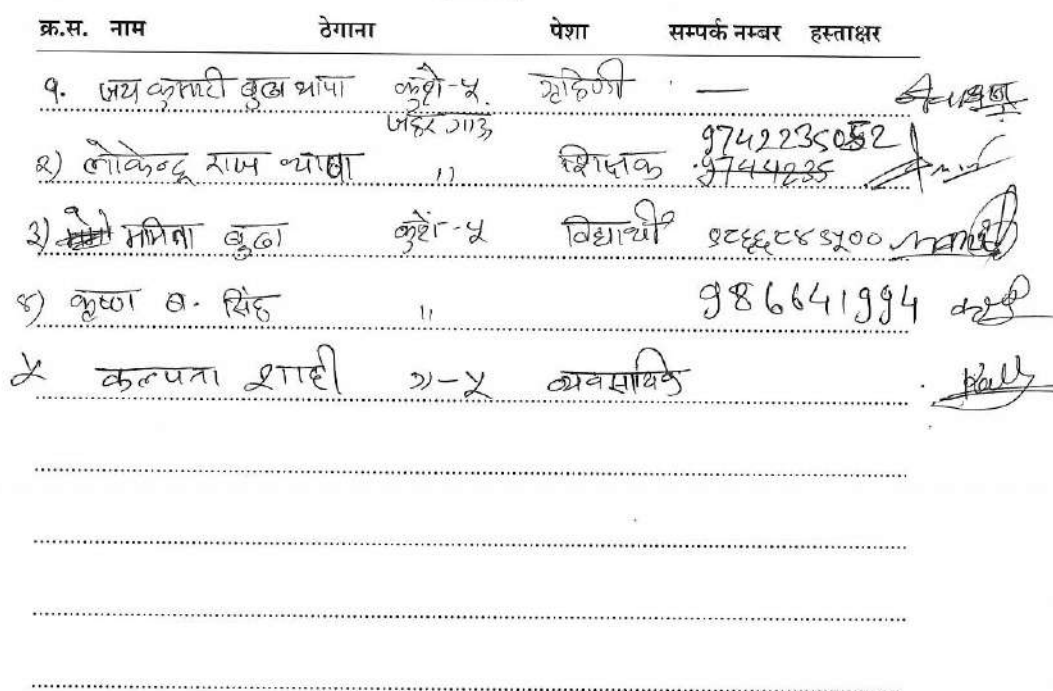 क्र.स. नाम ठेगाना पेशा सम्पर्क नम्बर हस्ताक्षर
१. जय कुमारी बुढा थापा कुशे-५. गृहिणी —
जहर गाउ
२) लोकेन्द्र राज थापा ,, शिक्षक 9742235052
9744235
३) ममिता बुढा कुशे-५ विद्यार्थी ९८६६८४९५००
४) कृष्ण ब. सिंह ,, 986641994
५ कल्पना शाही -५ व्यवसायिक